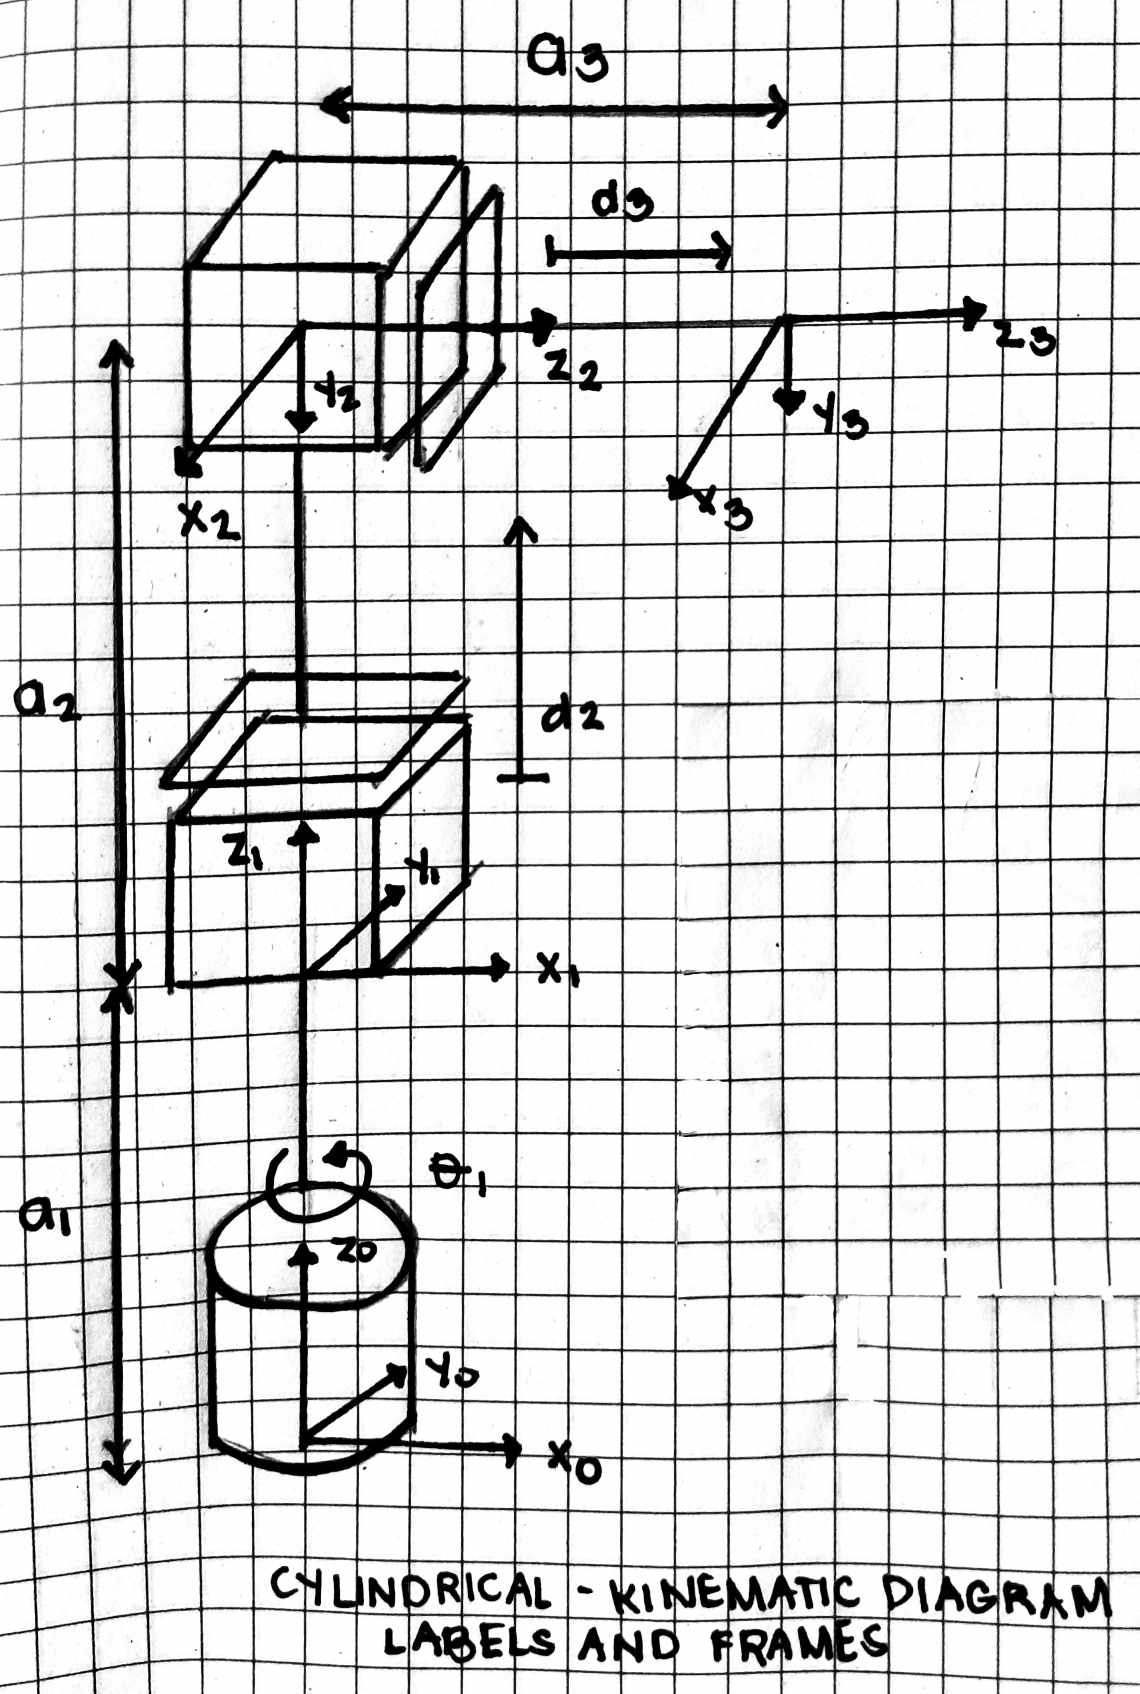 a3
d3
z2
z3
y2
y3
x2
x3
a2
d2
z1
y1
x1
θ1
a1
z0
y0
x0
CYLINDRICAL - KINEMATIC DIAGRAM
LABELS AND FRAMES